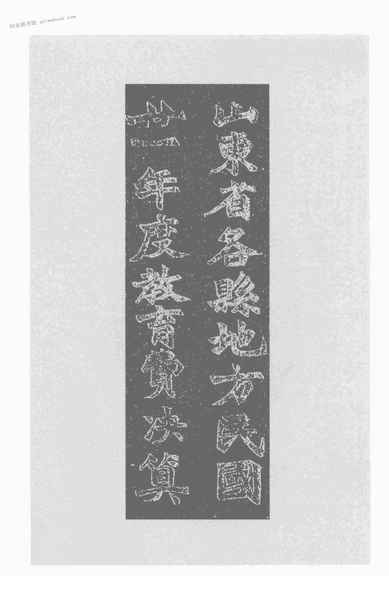 山東省各縣地方民國
廿一年度教育費決算